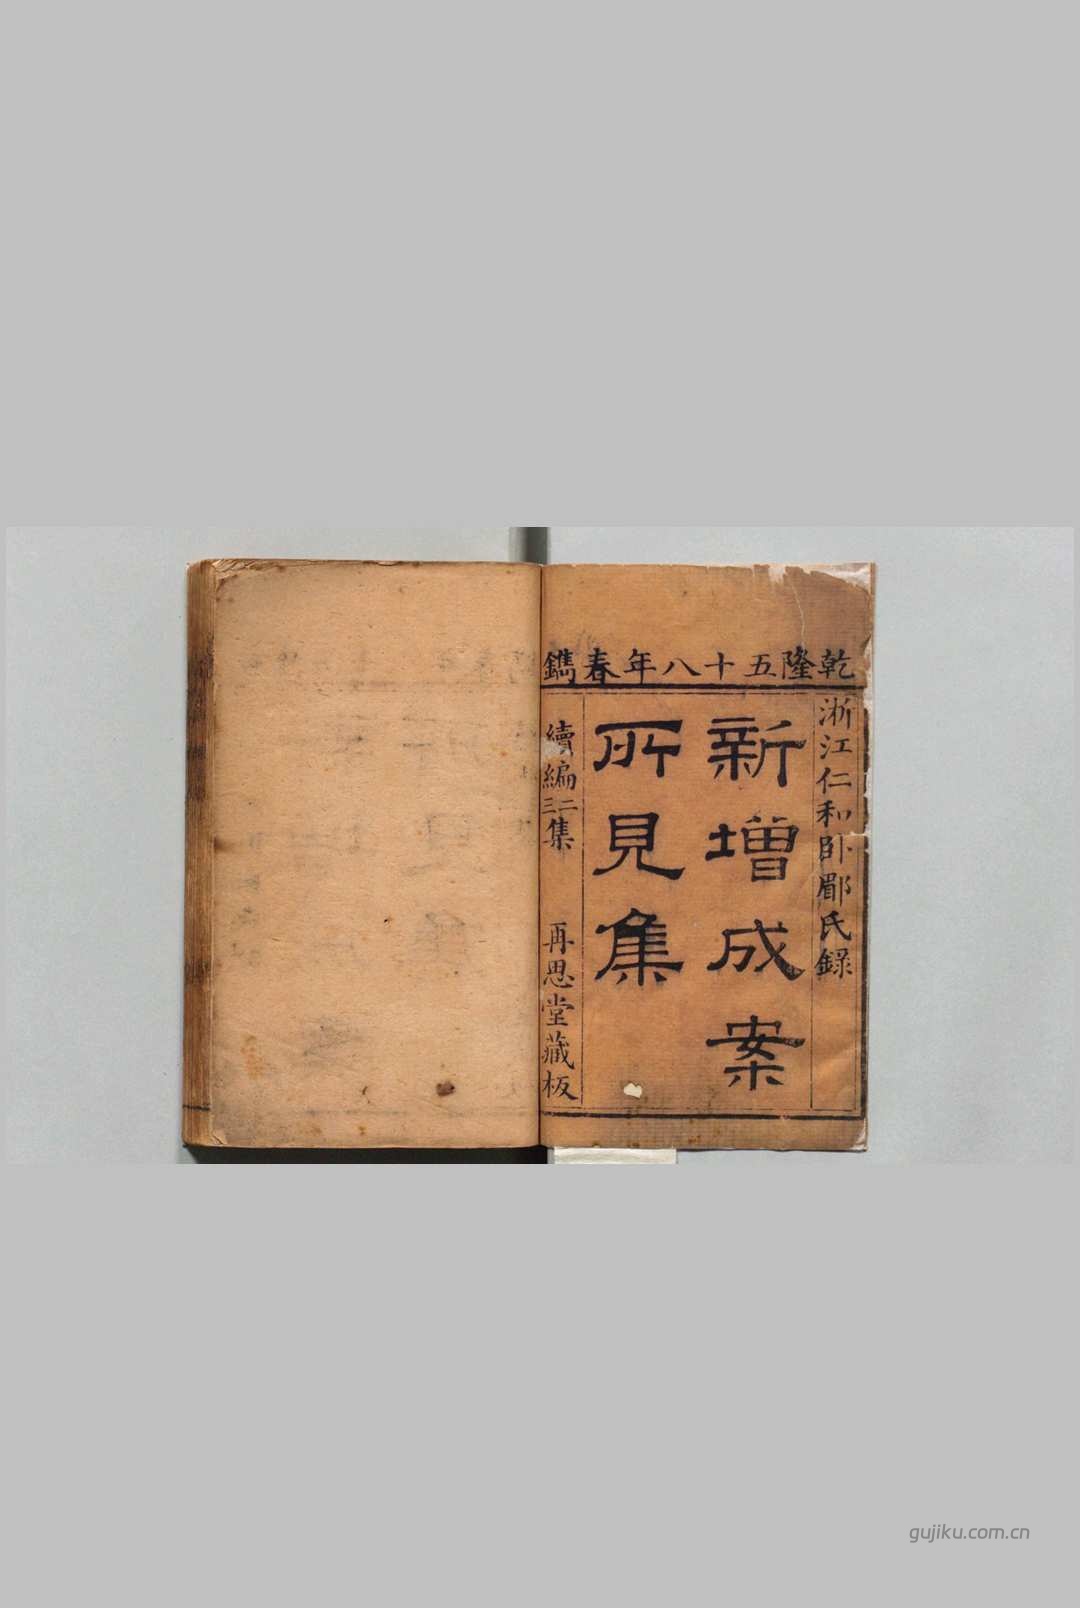 乾隆五十八年春鐫
浙江仁和臥郿氏錄
新增成案
所見集
續編二三集 再思堂藏板
gujiku.com.cn